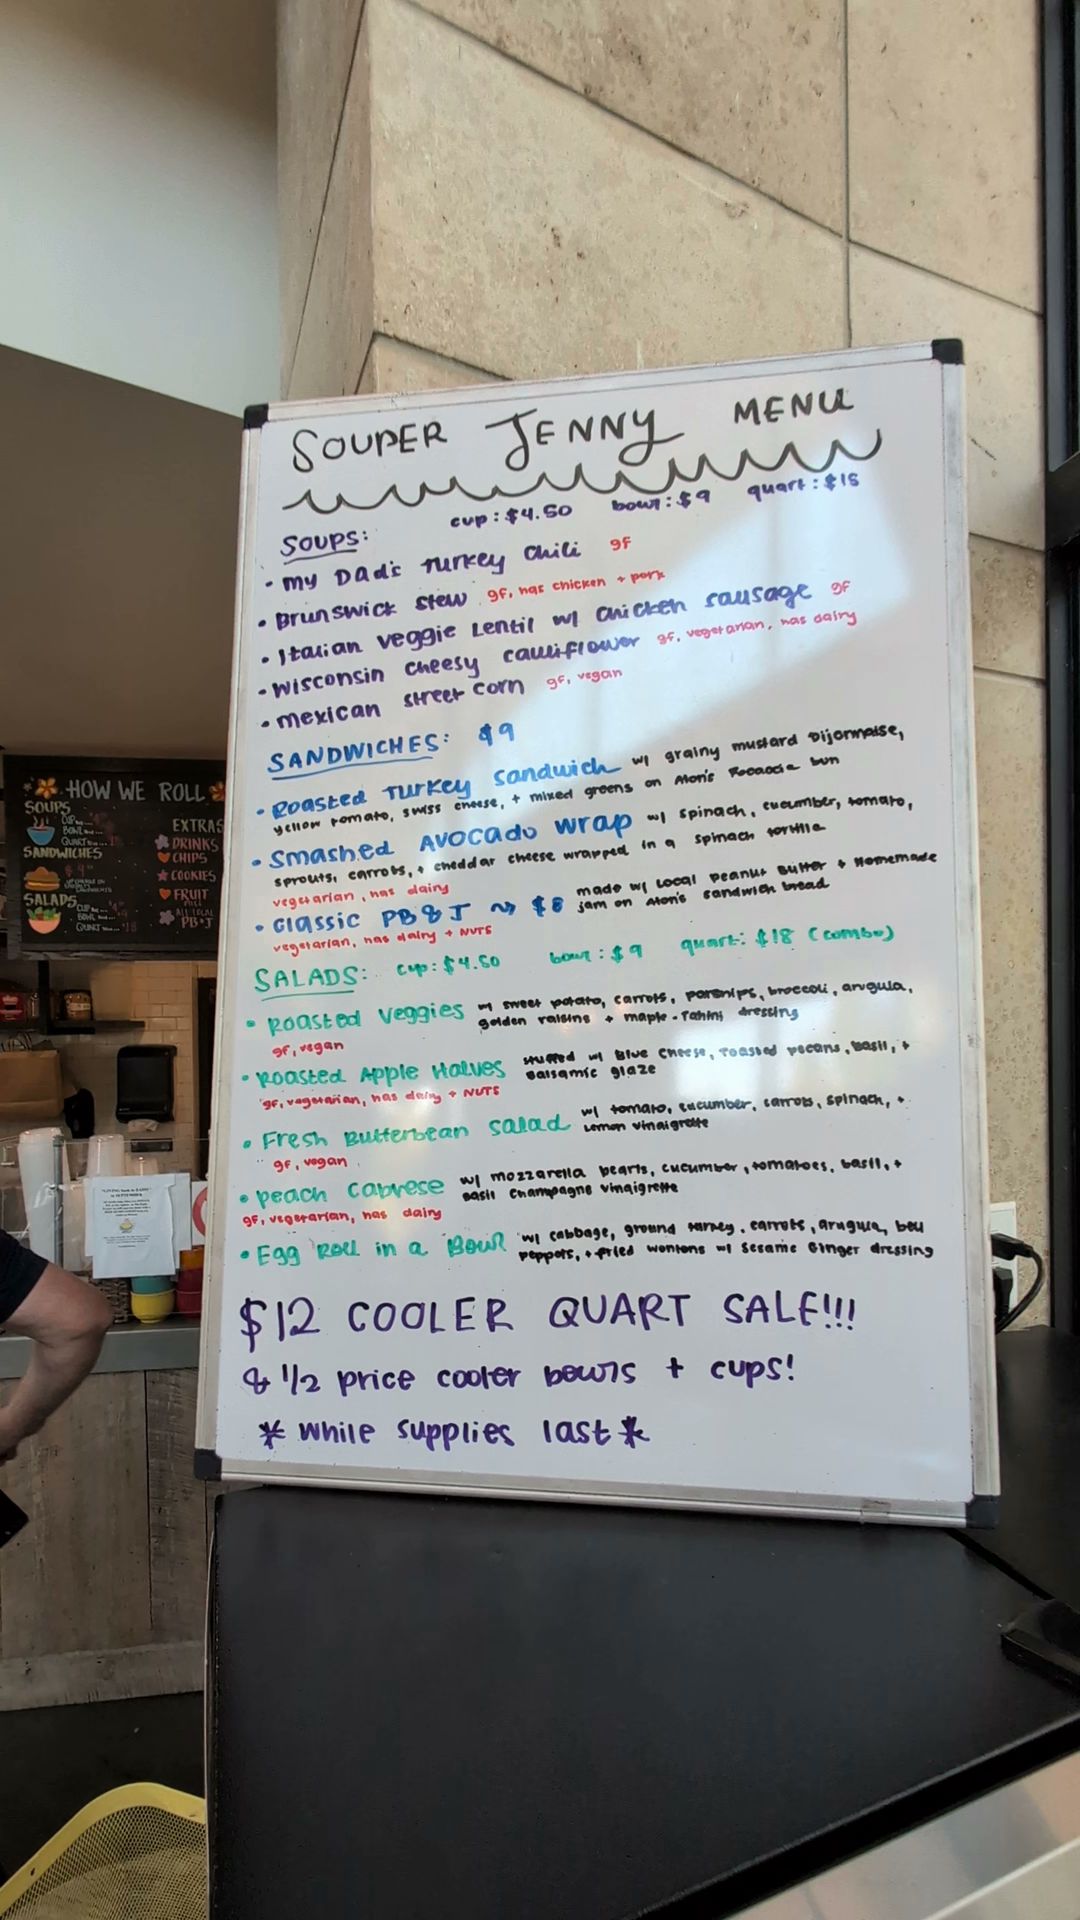 SOUPER JENNY MENU
SOUPS: cup: $4.50 bowl: $9 quart: $18
• My Dad's Turkey Chili gf
• Brunswick Stew gf, has chicken + pork
• Italian Veggie Lentil w/ Chicken Sausage gf
• Wisconsin Cheesy Cauliflower gf, vegetarian, has dairy
• Mexican Street Corn gf, vegan
SANDWICHES: $9
• Roasted Turkey Sandwich w/ grainy mustard Dijonnaise,
yellow tomato, swiss cheese, + mixed greens on Alon's Focaccia bun
• Smashed Avocado Wrap w/ spinach, cucumber, tomato,
sprouts, carrots, + cheddar cheese wrapped in a spinach tortilla
vegetarian, has dairy
• Classic PB & J ~> $8 made w/ Local Peanut Butter + Homemade
jam on Alon's sandwich bread
vegetarian, has dairy + NUTS
SALADS: cup: $4.50 bowl: $9 quart: $18 (combo)
• Roasted Veggies w/ sweet potato, carrots, parsnips, broccoli, arugula,
golden raisins + maple-tahini dressing
gf, vegan
• Roasted Apple Halves stuffed w/ Blue Cheese, roasted pecans, basil, +
Balsamic glaze
gf, vegetarian, has dairy + NUTS
• Fresh Butterbean Salad w/ tomato, cucumber, carrots, spinach, +
Lemon vinaigrette
gf, vegan
• Peach Caprese w/ mozzarella pearls, cucumber, tomatoes, basil, +
Basil Champagne Vinaigrette
gf, vegetarian, has dairy
• Egg Roll in a Bowl w/ cabbage, ground turkey, carrots, arugula, bell
peppers, + fried wontons w/ Sesame Ginger dressing
$12 COOLER QUART SALE!!!
& 1/2 price cooler bowls + cups!
* While supplies last *
HOW WE ROLL
SOUPS
CUP
BOWL
QUART
SANDWICHES
SALADS
CUP
BOWL
QUART
EXTRAS
DRINKS
CHIPS
COOKIES
FRUIT
PB+J